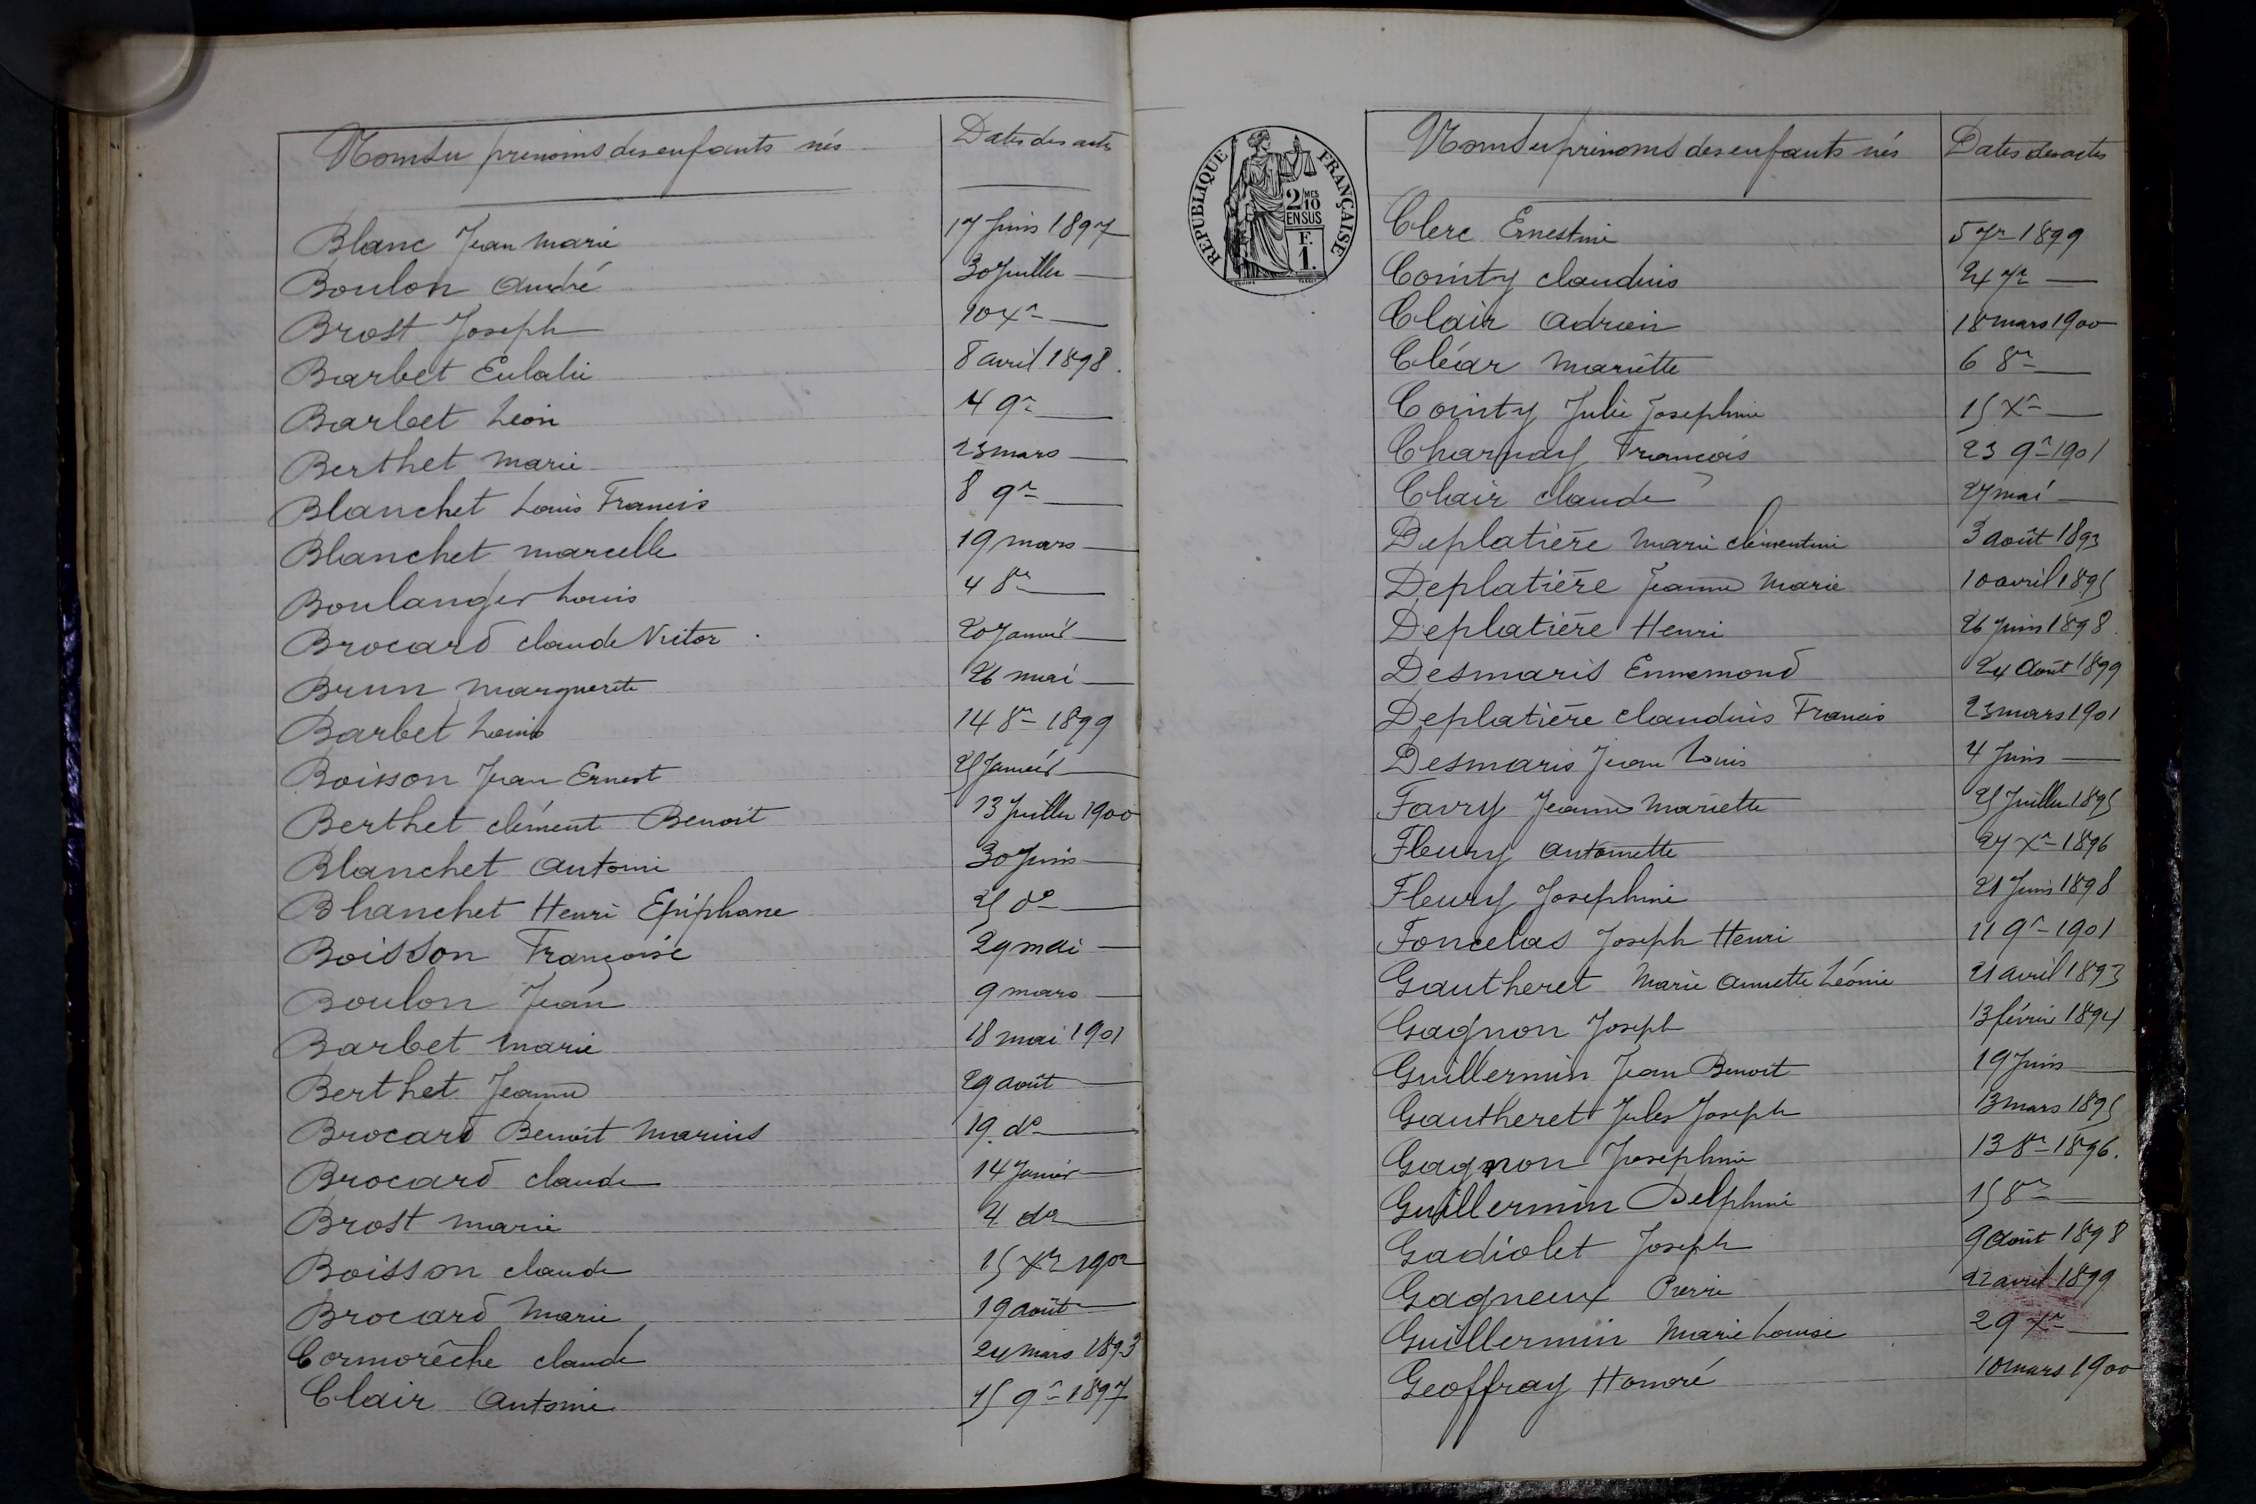 Noms et prénoms des enfants nés Dates des actes
Blanc Jean Marie 17 Juin 1897
Boulon André 30 Juillet —
Brost Joseph 10 Xre —
Barbet Eulalie 8 avril 1898.
Barbet Léon 4 9re —
Berthet Marie 23 mars —
Blanchet Louis Francis 8 9re —
Blanchet marcelle 19 mars —
Boulanger Louis 4 8re —
Brocard claude Victor 20 Janvier —
Brun Marguerite 26 mai —
Barbet Louis 14 8re 1899
Boisson Jean Ernest 25 Janvier —
Berthet clément Benoit 13 Juillet 1900
Blanchet Antoine 30 Juin —
Blanchet Henri Epiphane 25 do —
Boisson Françoise 29 mai —
Boulon Jean 9 mars —
Barbet Marie 18 mai 1901
Berthet Jeanne 29 août —
Brocard Benoit Marius 19. do —
Brocard claude 14 Janvier —
Brost marie 4 do —
Boisson claude 15 Xre 1902
Brocard Marie 19 août —
Cormorêche claude 24 mars 1893
Clair Antoine 15 9re 1897
REPUBLIQUE FRANÇAISE
2/10 MES
EN SUS
F.
1.
Noms et prénoms des enfants nés Dates des actes
Clerc Ernestine 5 7re 1899
Cointy claudius 24 7re —
Clair Adrien 18 mars 1900
Cléar Mariette 6 8re —
Cointy Julie Josephine 15 Xre —
Charnay François 23 9re 1901
Clair claude 27 mai —
Deplatière Marie clémentine 3 août 1893
Deplatière Jeanne Marie 10 avril 1895
Deplatière Henri 26 Juin 1898.
Desmaris Ennemond 24 Août 1899
Deplatière claudius Francis 23 mars 1901
Desmaris Jean Louis 4 Juin —
Favry Jeanne Mariette 25 Juillet 1895
Fleury Antoinette 27 Xre 1896
Fleury Josephine 21 Juin 1898
Foncelas Joseph Henri 11 9re 1901
Gautheret Marie Annette Léonie 21 avril 1893
Gagnon Joseph 13 février 1894
Guillermin Jean Benoit 19 Juin —
Gautheret Jules Joseph 13 mars 1895
Gagnon Josephine 13 8re 1896.
Guillermin Delphine 15 8re —
Gadiolet Joseph 9 Août 1898
Gagneux Pierre 22 avril 1899
Guillermin Marie Louise 29 Xre —
Geoffray Honoré 10 mars 1900